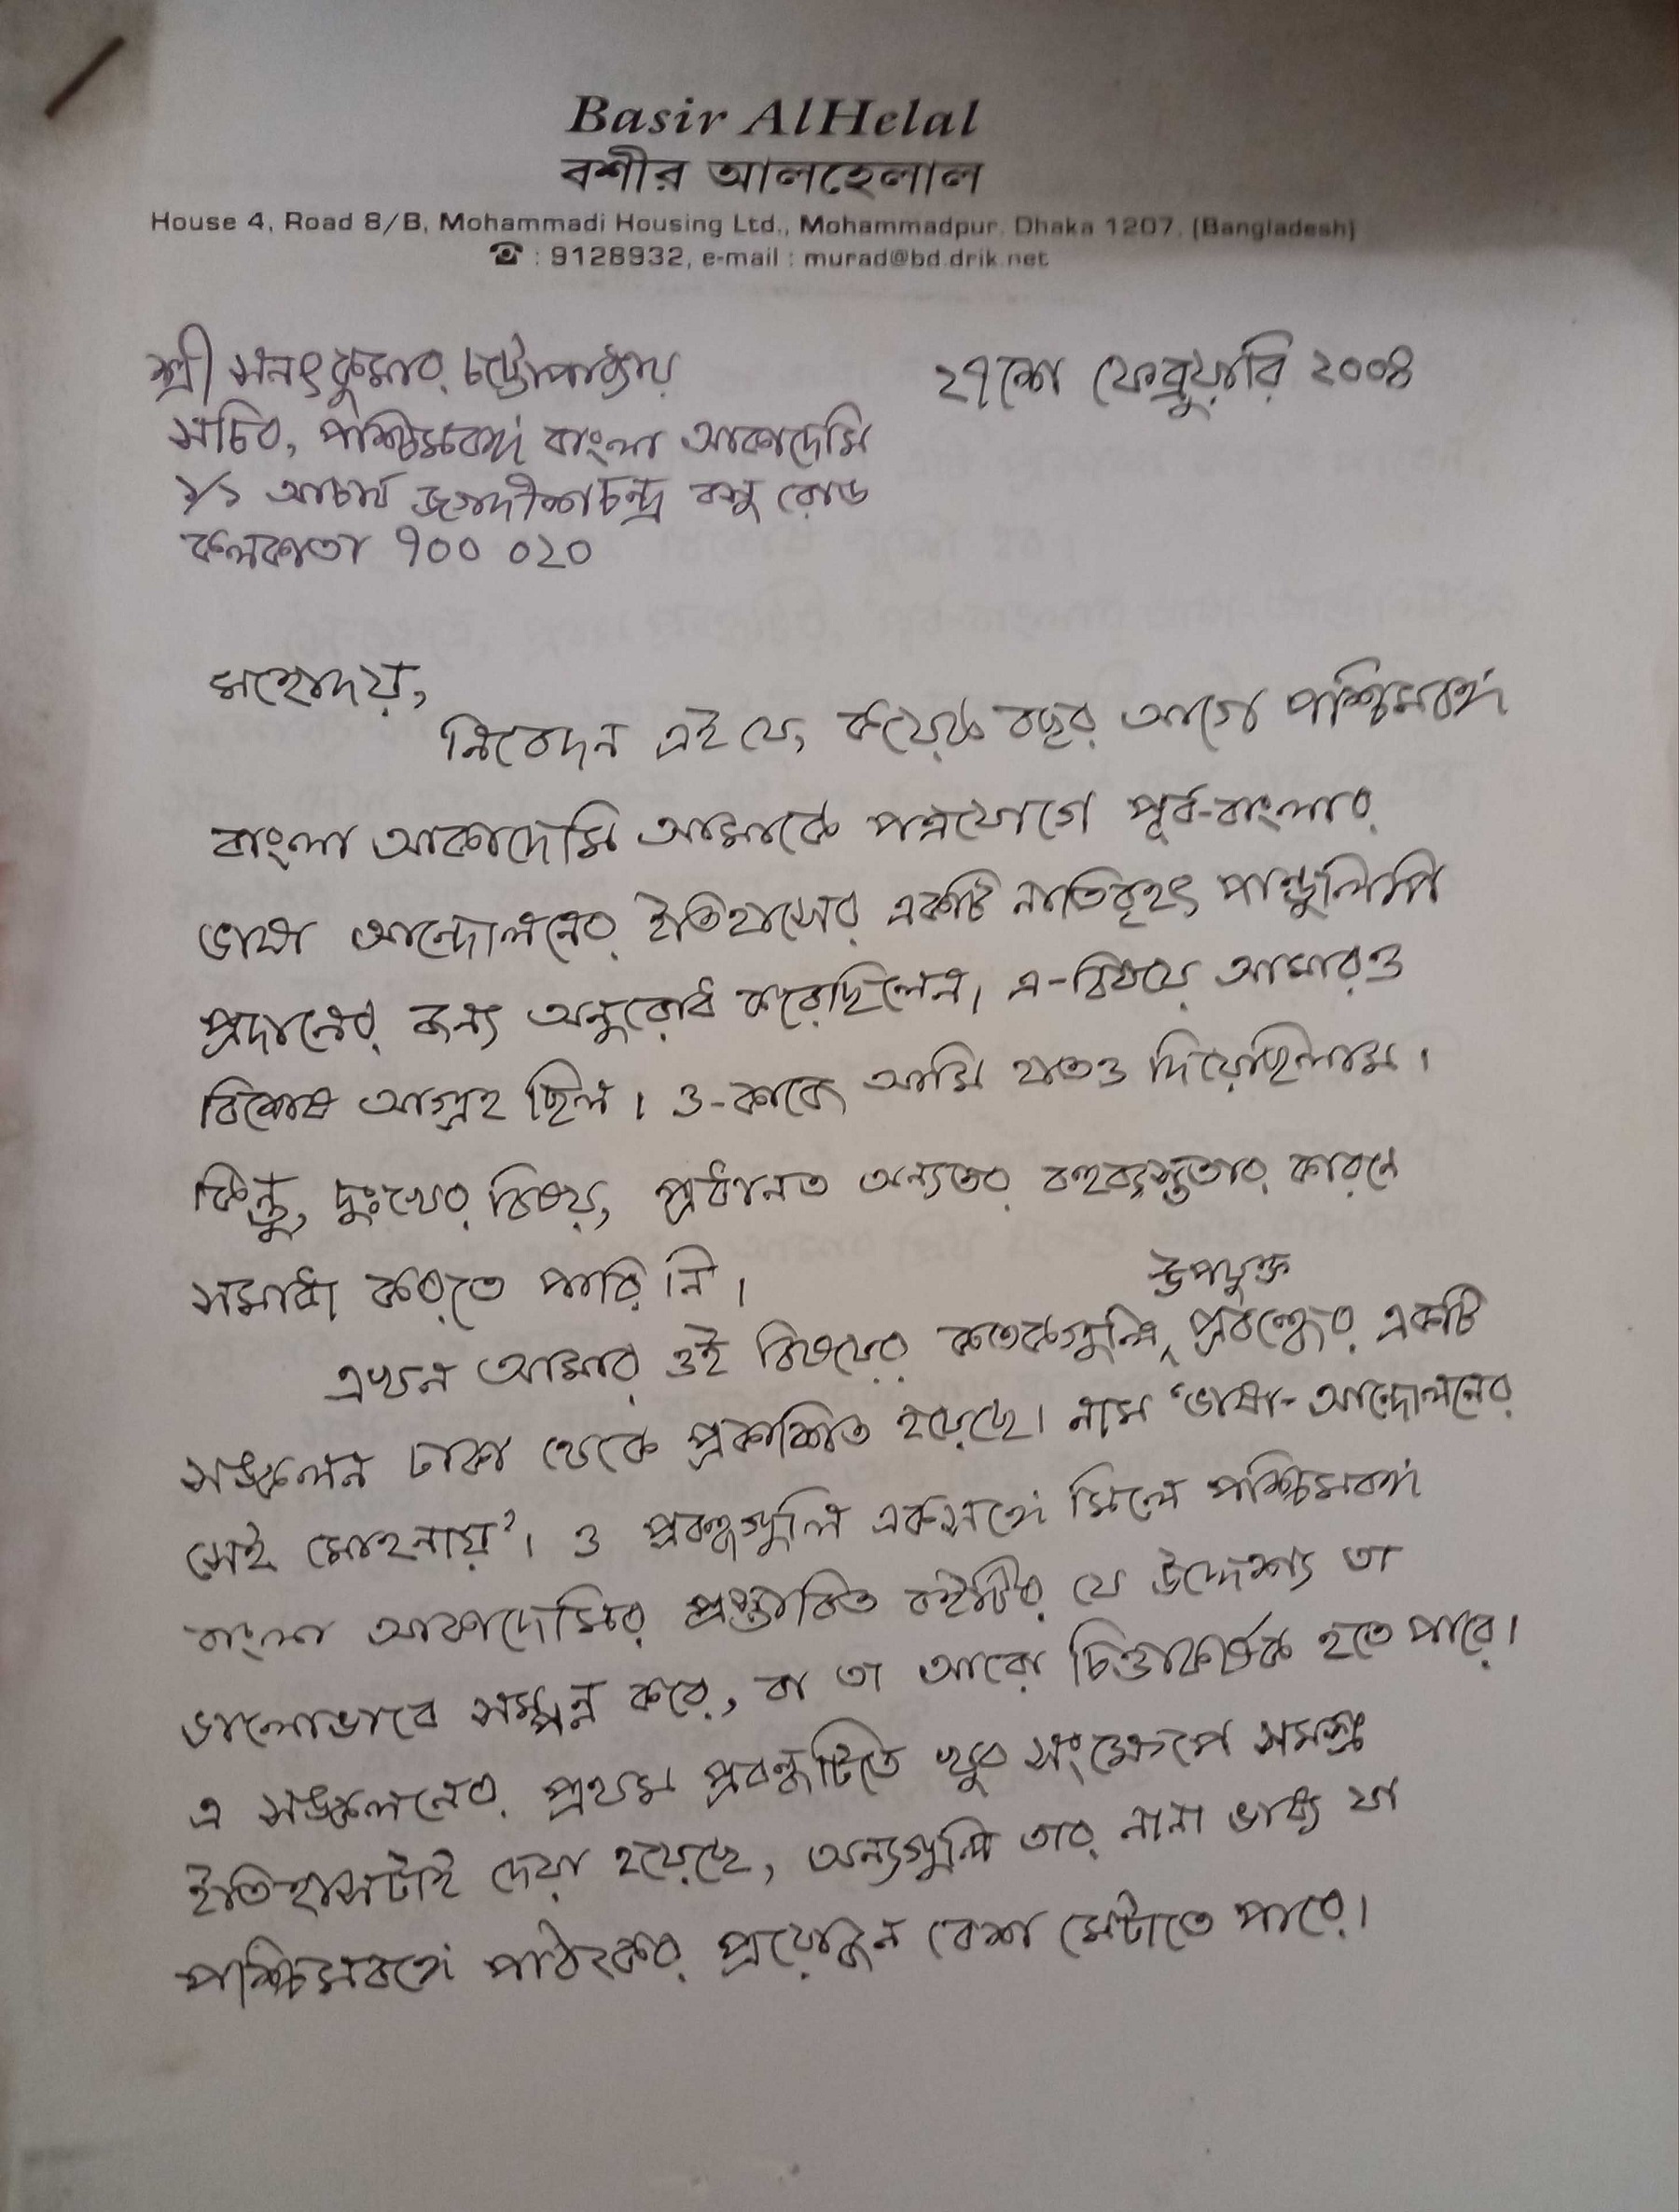 Basir AlHelal
বশীর আলহেলাল
House 4, Road 8/B, Mohammadi Housing Ltd., Mohammadpur, Dhaka 1207, (Bangladesh)
☎ : 9128932, e-mail : murad@bd.drik.net
শ্রী সনৎকুমার চট্টোপাধ্যায় ২৭শে ফেব্রুয়ারি ২০০৪
সচিব, পশ্চিমবঙ্গ বাংলা আকাদেমি
১/১ আচার্য জগদীশচন্দ্র বসু রোড
কলকাতা ৭০০ ০২০
মহোদয়,
নিবেদন এই যে, কয়েক বছর আগে পশ্চিমবঙ্গ
বাংলা আকাদেমি আমাকে পত্রযোগে পূর্ব-বাংলার
ভাষা আন্দোলনের ইতিহাসের একটি নাতিবৃহৎ পাণ্ডুলিপি
প্রদানের জন্য অনুরোধ করেছিলেন। এ-বিষয়ে আমারও
বিশেষ আগ্রহ ছিল। ও-কাজে আমি হাতও দিয়েছিলাম।
কিন্তু, দুঃখের বিষয়, প্রধানত অন্যতর বহুব্যস্ততার কারণে
সমাধা করতে পারি নি।
এখন আমার ওই বিষয়ের কতকগুলি উপযুক্ত প্রবন্ধের একটি
সঙ্কলন ঢাকা থেকে প্রকাশিত হয়েছে। নাম 'ভাষা-আন্দোলনের
সেই মোহনায়'। ও প্রবন্ধগুলি একসঙ্গে মিলে পশ্চিমবঙ্গ
বাংলা আকাদেমির প্রস্তাবিত বইটির যে উদ্দেশ্য তা
ভালোভাবে সম্পন্ন করে, বা তা আরো চিত্তাকর্ষক হতে পারে।
এ সঙ্কলনের প্রথম প্রবন্ধটিতে খুব সংক্ষেপে সমগ্র
ইতিহাসটাই দেয়া হয়েছে, অন্যগুলি তার নানা ভাষ্য যা
পশ্চিমবঙ্গে পাঠকের প্রয়োজন বেশ মেটাতে পারে।